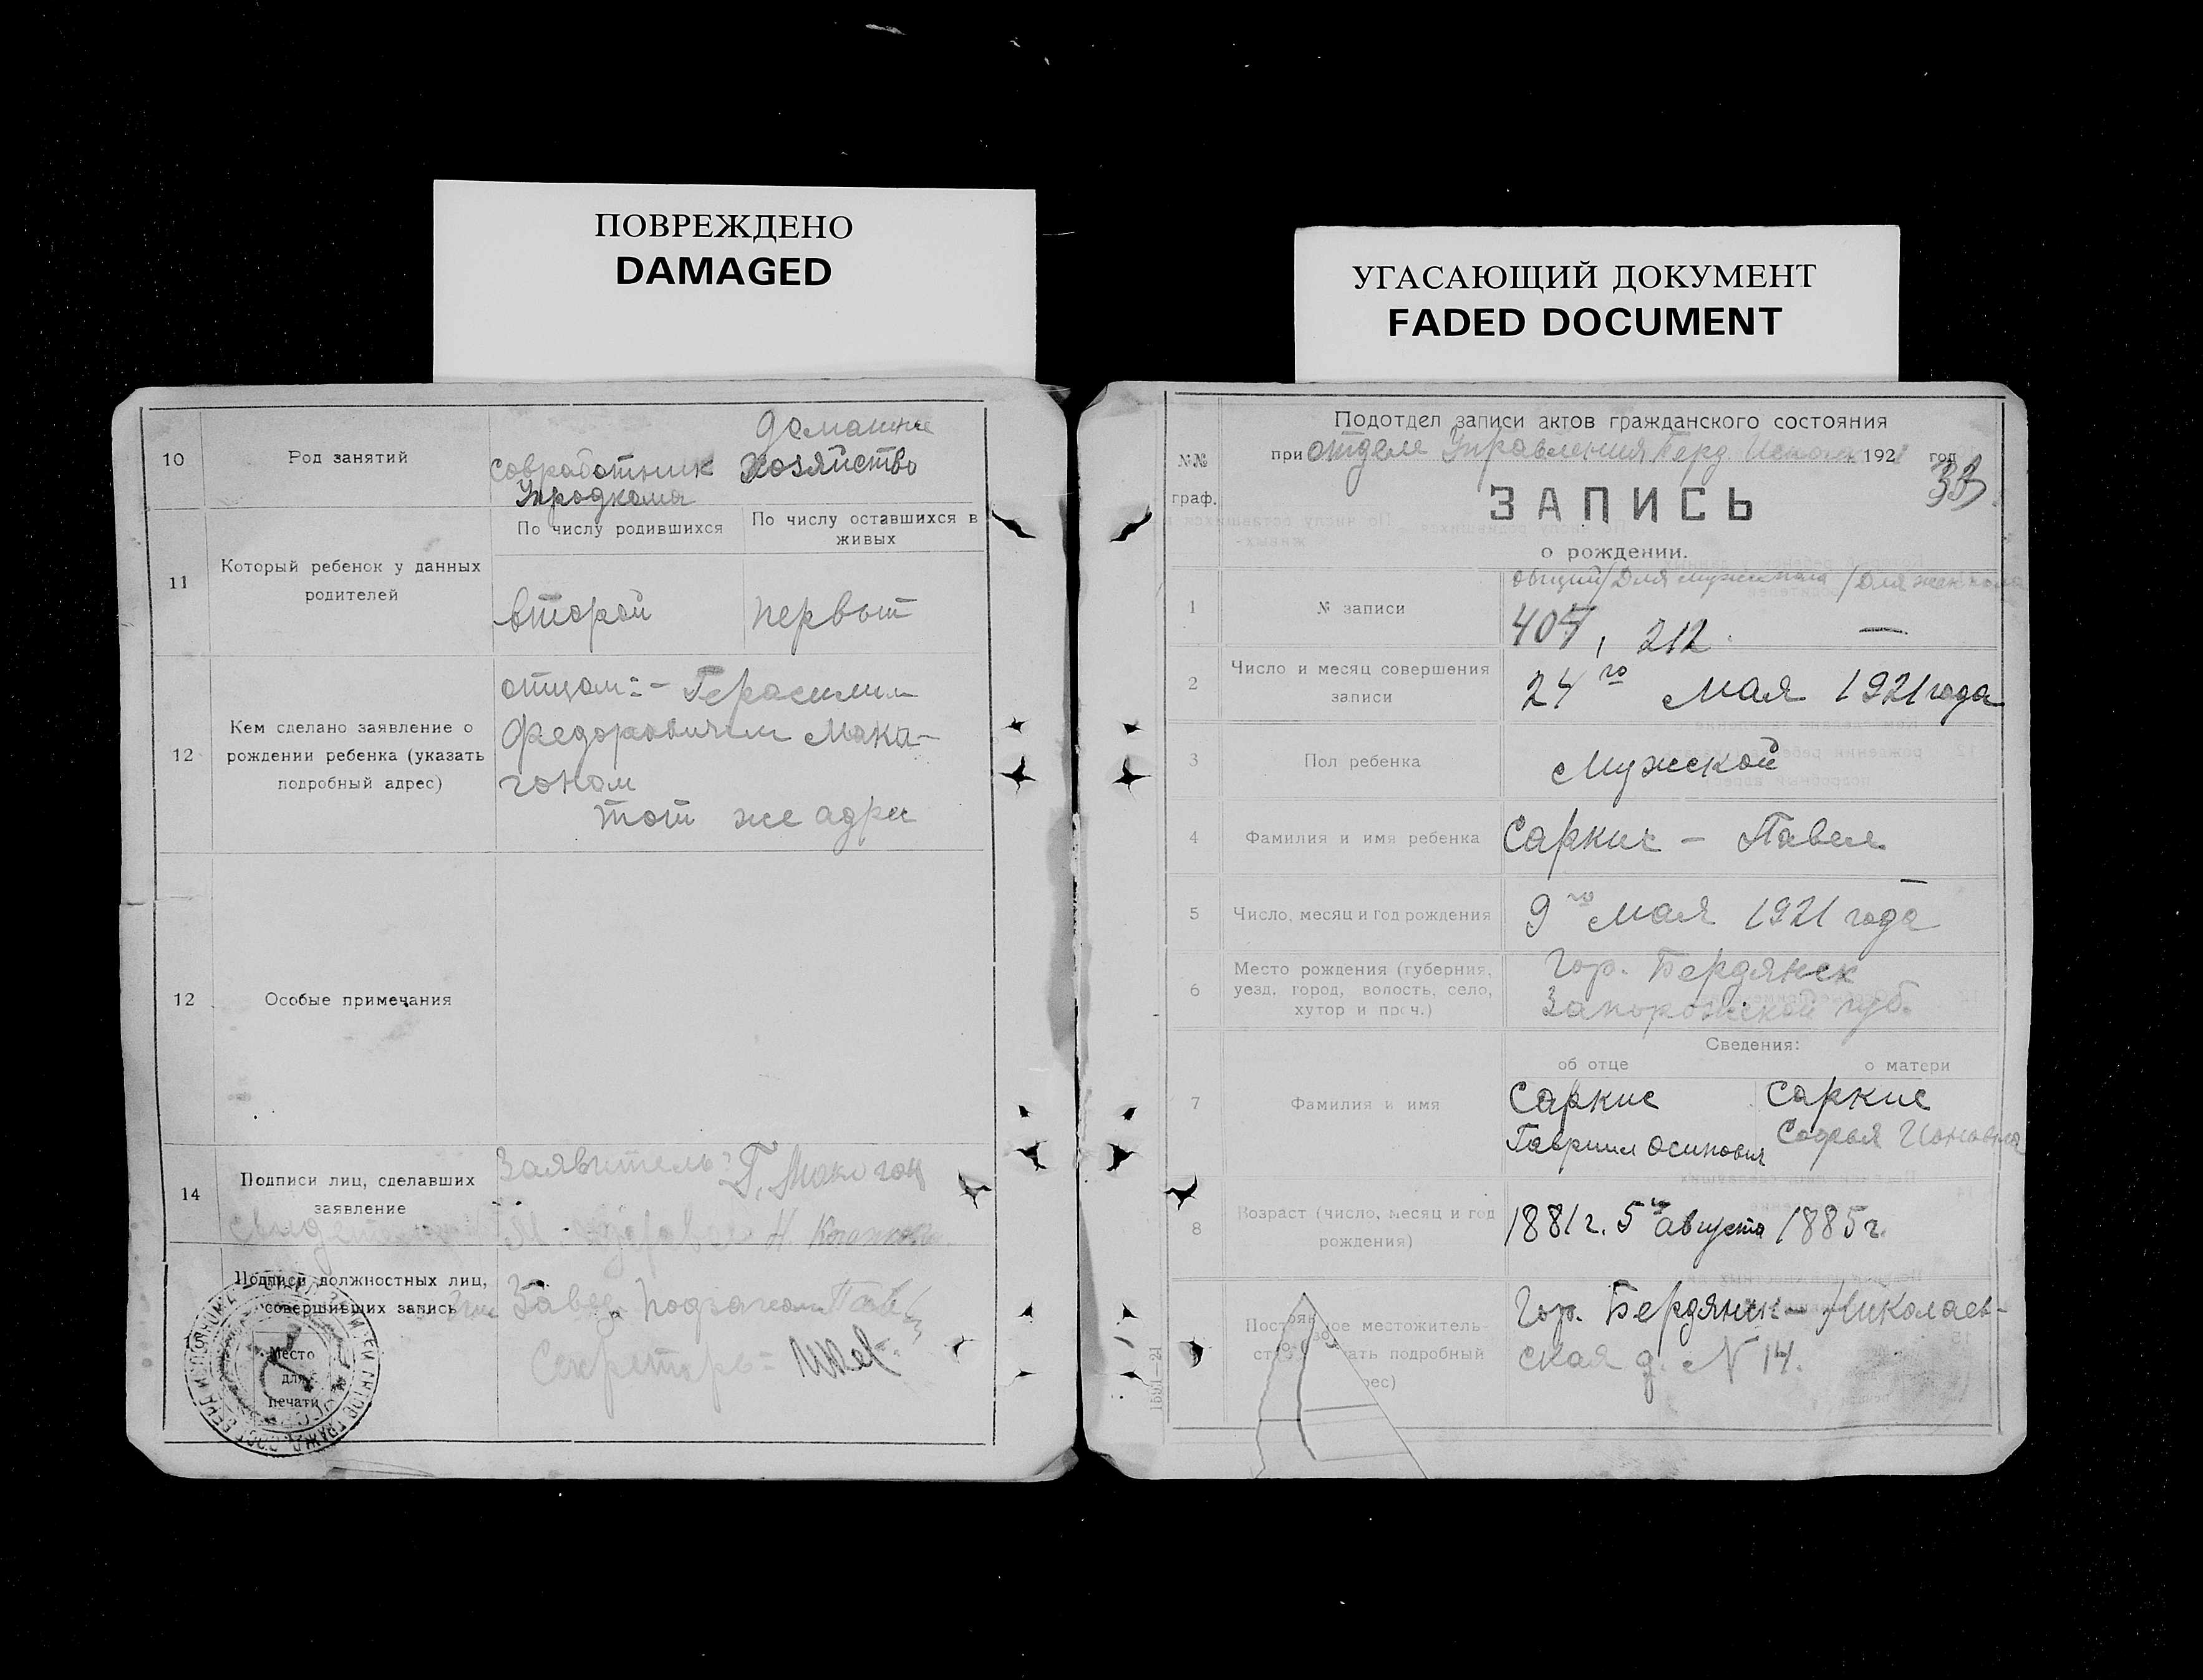 ПОВРЕЖДЕНО
DAMAGED
10
Род занятий
совработник
Упродкома
домашнее
хозяйство
11
Который ребенок у данных
родителей
По числу родившихся
По числу оставшихся в
живых
второй
первый
12
Кем сделано заявление о
рождении ребенка (указать
подробный адрес)
отцом:- Герасимом
Федоровичем Мака-
гоном
тот же адрес
12
Особые примечания
14
Подписи лиц, сделавших
заявление
Заявитель: Г. Макогон
Н.
Подписи должностных лиц,
совершивших запись
Завед.
Секретарь:
Место
для
печати
УГАСАЮЩИЙ ДОКУМЕНТ
FADED DOCUMENT
№№
граф.
Подотдел записи актов гражданского состояния
при отделе Управления Берд. 192 год
33
ЗАПИСЬ
о рождении.
1
№ записи
общий/для мужского/для женского
405, 212. —
2
Число и месяц совершения
записи
24го мая 1921 года
3
Пол ребенка
Мужской
4
Фамилия и имя ребенка
Саркис - Павел
5
Число, месяц и год рождения
9го мая 1921 года
6
Место рождения (губерния,
уезд, город, волость, село,
хутор и проч.)
Гор. Бердянск
Запорожской губ.
Сведения:
об отце
о матери
7
Фамилия и имя
Саркис
Гавриил Осипович
Саркис
Софья
8
Возраст (число, месяц и год
рождения)
1881 г. 5го августа
1885 г.
9
местожитель-
подробный
Гор. Бердянск - Николаев-
ская д. № 14.